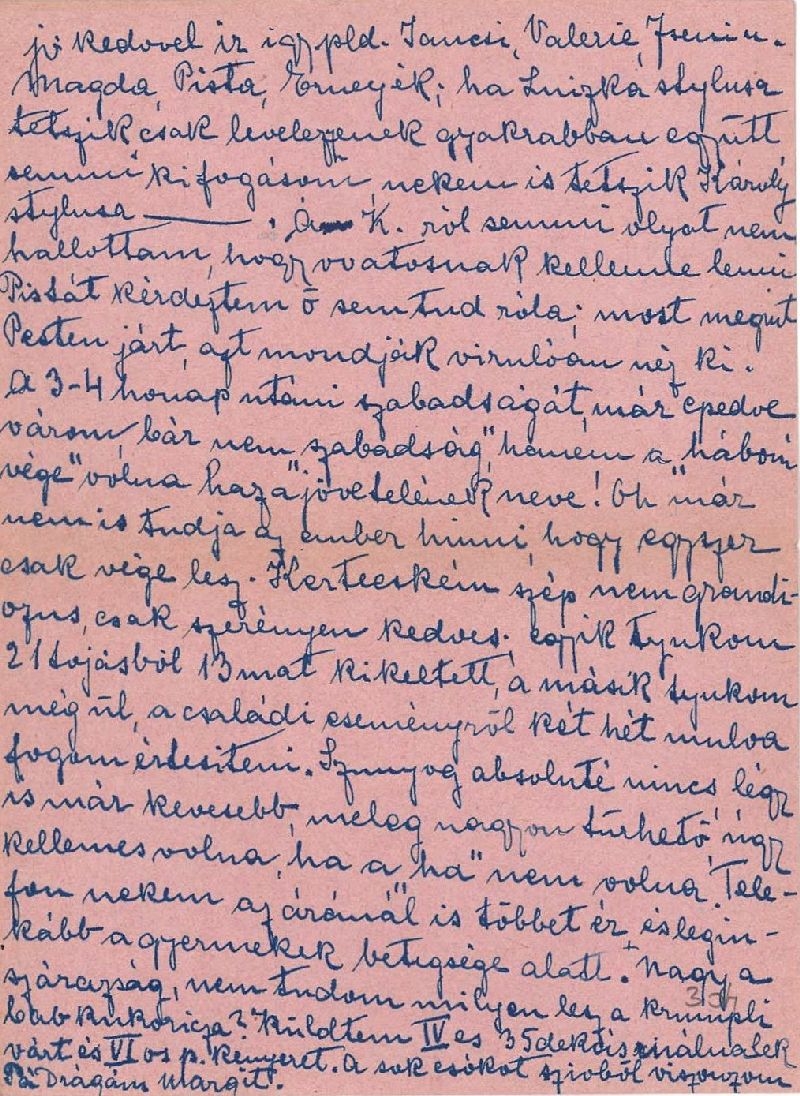 jó kedvvel ir igy pld. Jancsi, Valerie,
Magda, Pista, Erneyék; ha Luizka stylusa
tetszik csak levelezzenek gyakrabban együtt
semmi kifogásom, nekem is tetszik Károly
stylusa ———. K. ról semmi olyat nem
hallottam, hogy ovatosnak kellene lenni
Pistát kérdeztem ő sem tud róla; most megint
Pesten járt, azt mondják virulóan néz ki.
A 3-4 honap utáni szabadságát, már epedve
várom, bár nem szabadság", hanem a "háború
vége" volna haza "jövetelének neve! Oh már
nem is tudja az ember hinni, hogy egyszer
csak vége lesz. Kertecském szép nem grandi-
ozus, csak szerényen kedves; egyik tyukom
21 tojásból 13mat kikeltett, a másik tyukom
még ül, a családi eseményről két hét mulva
fogom értesiteni. Szunyog absoluté nincs, légy
is már kevesebb, meleg nagyon türhető, úgy
kellemes volna, ha a "ha" nem volna. Tele-
fon nekem az áránál is többet ér, és legin-
kább a gyermekek betegsége alatt. Nagy a
szárazság, nem tudom milyen lesz a krumpli
bab kukoricza? Küldtem IV es 35dekás
várt és VI os p. kenyeret. A sok csókot szivből viszonzom
Pá Drágám Margit.
304